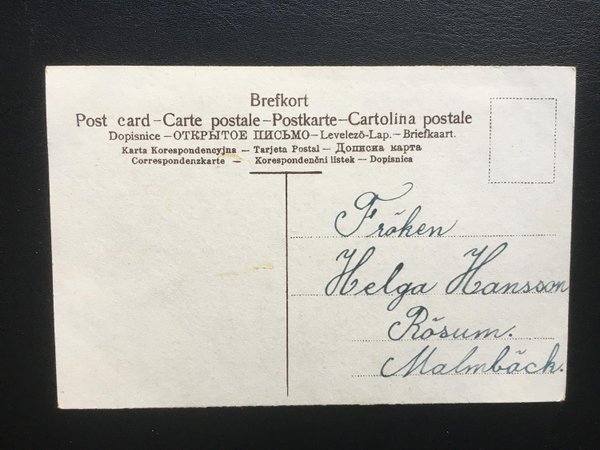 Brefkort
Post card – Carte postale – Postkarte – Cartolina postale
Dopisnice – ОТКРЫТОЕ ПИСЬМО – Levelező-Lap. – Briefkaart.
Karta Korespondencyjna – Tarjeta Postal – Дописна карта
Correspondenzkarte – Korespondenční listek – Dopisnica
Fröken
Helga Hansson
Rösum.
Malmbäck.